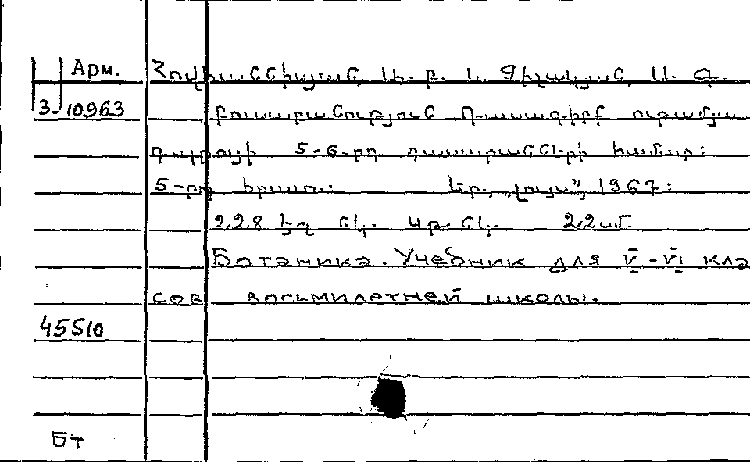 Арм.
Հովհաննիսյան
3-10963
բուսաբանություն Դասագիրք ութամյա
դպրոցի 5-6-րդ դասարանների համար:
5-րդ հրատ. Եր., „Լույս”, 1967:
228 էջ նկ. 22սմ
Ботаника. Учебник для V-VI клас
сов восьмилетней школы.
45510
Бт